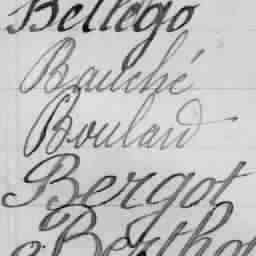 Bellego
Bauché
Boulard
Bergot
Berthot